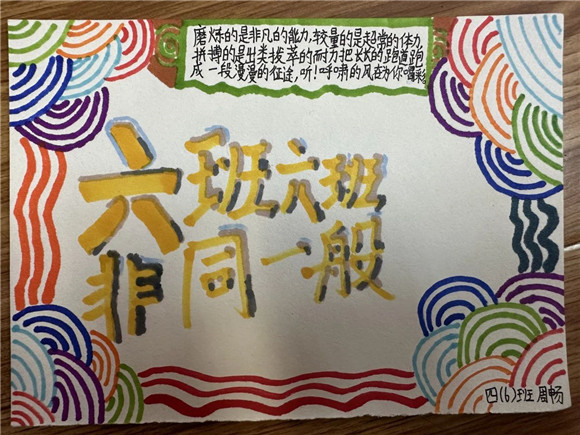 磨炼的是非凡的能力,较量的是超常的体力,
拼搏的是出类拔萃的耐力把长长的跑道跑
成一段漫漫的征途,听!呼啸的风在为你喝彩
六班六班
非同一般
四(6)班 周畅